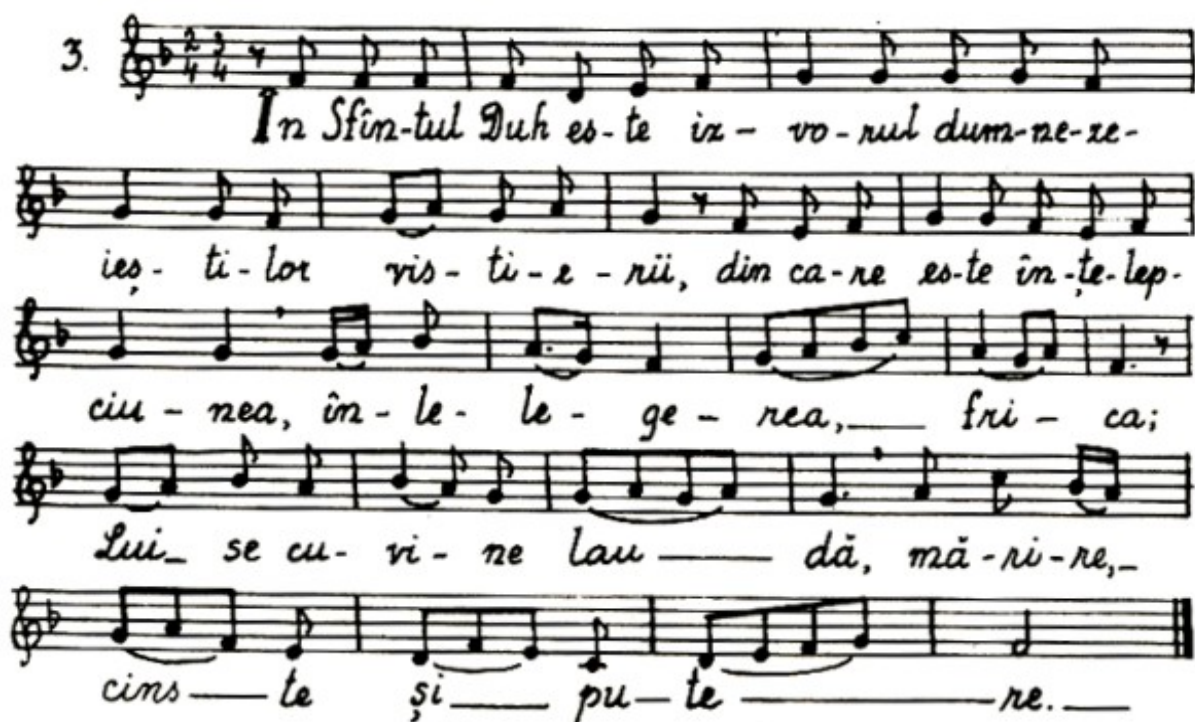 3. 2 3
4 4
In Sfîn-tul Duh es-te iz- vo-rul dum-ne-ze-
ieș-ti-lor vis-ti-e-rii, din ca-re es-te în-țe-lep-
ciu-nea, în-le-le-ge-rea,___ fri-ca;
Lui_ se cu-vi-ne lau___dă, mă-ri-re,_
cins___te și___pu-te___re.___